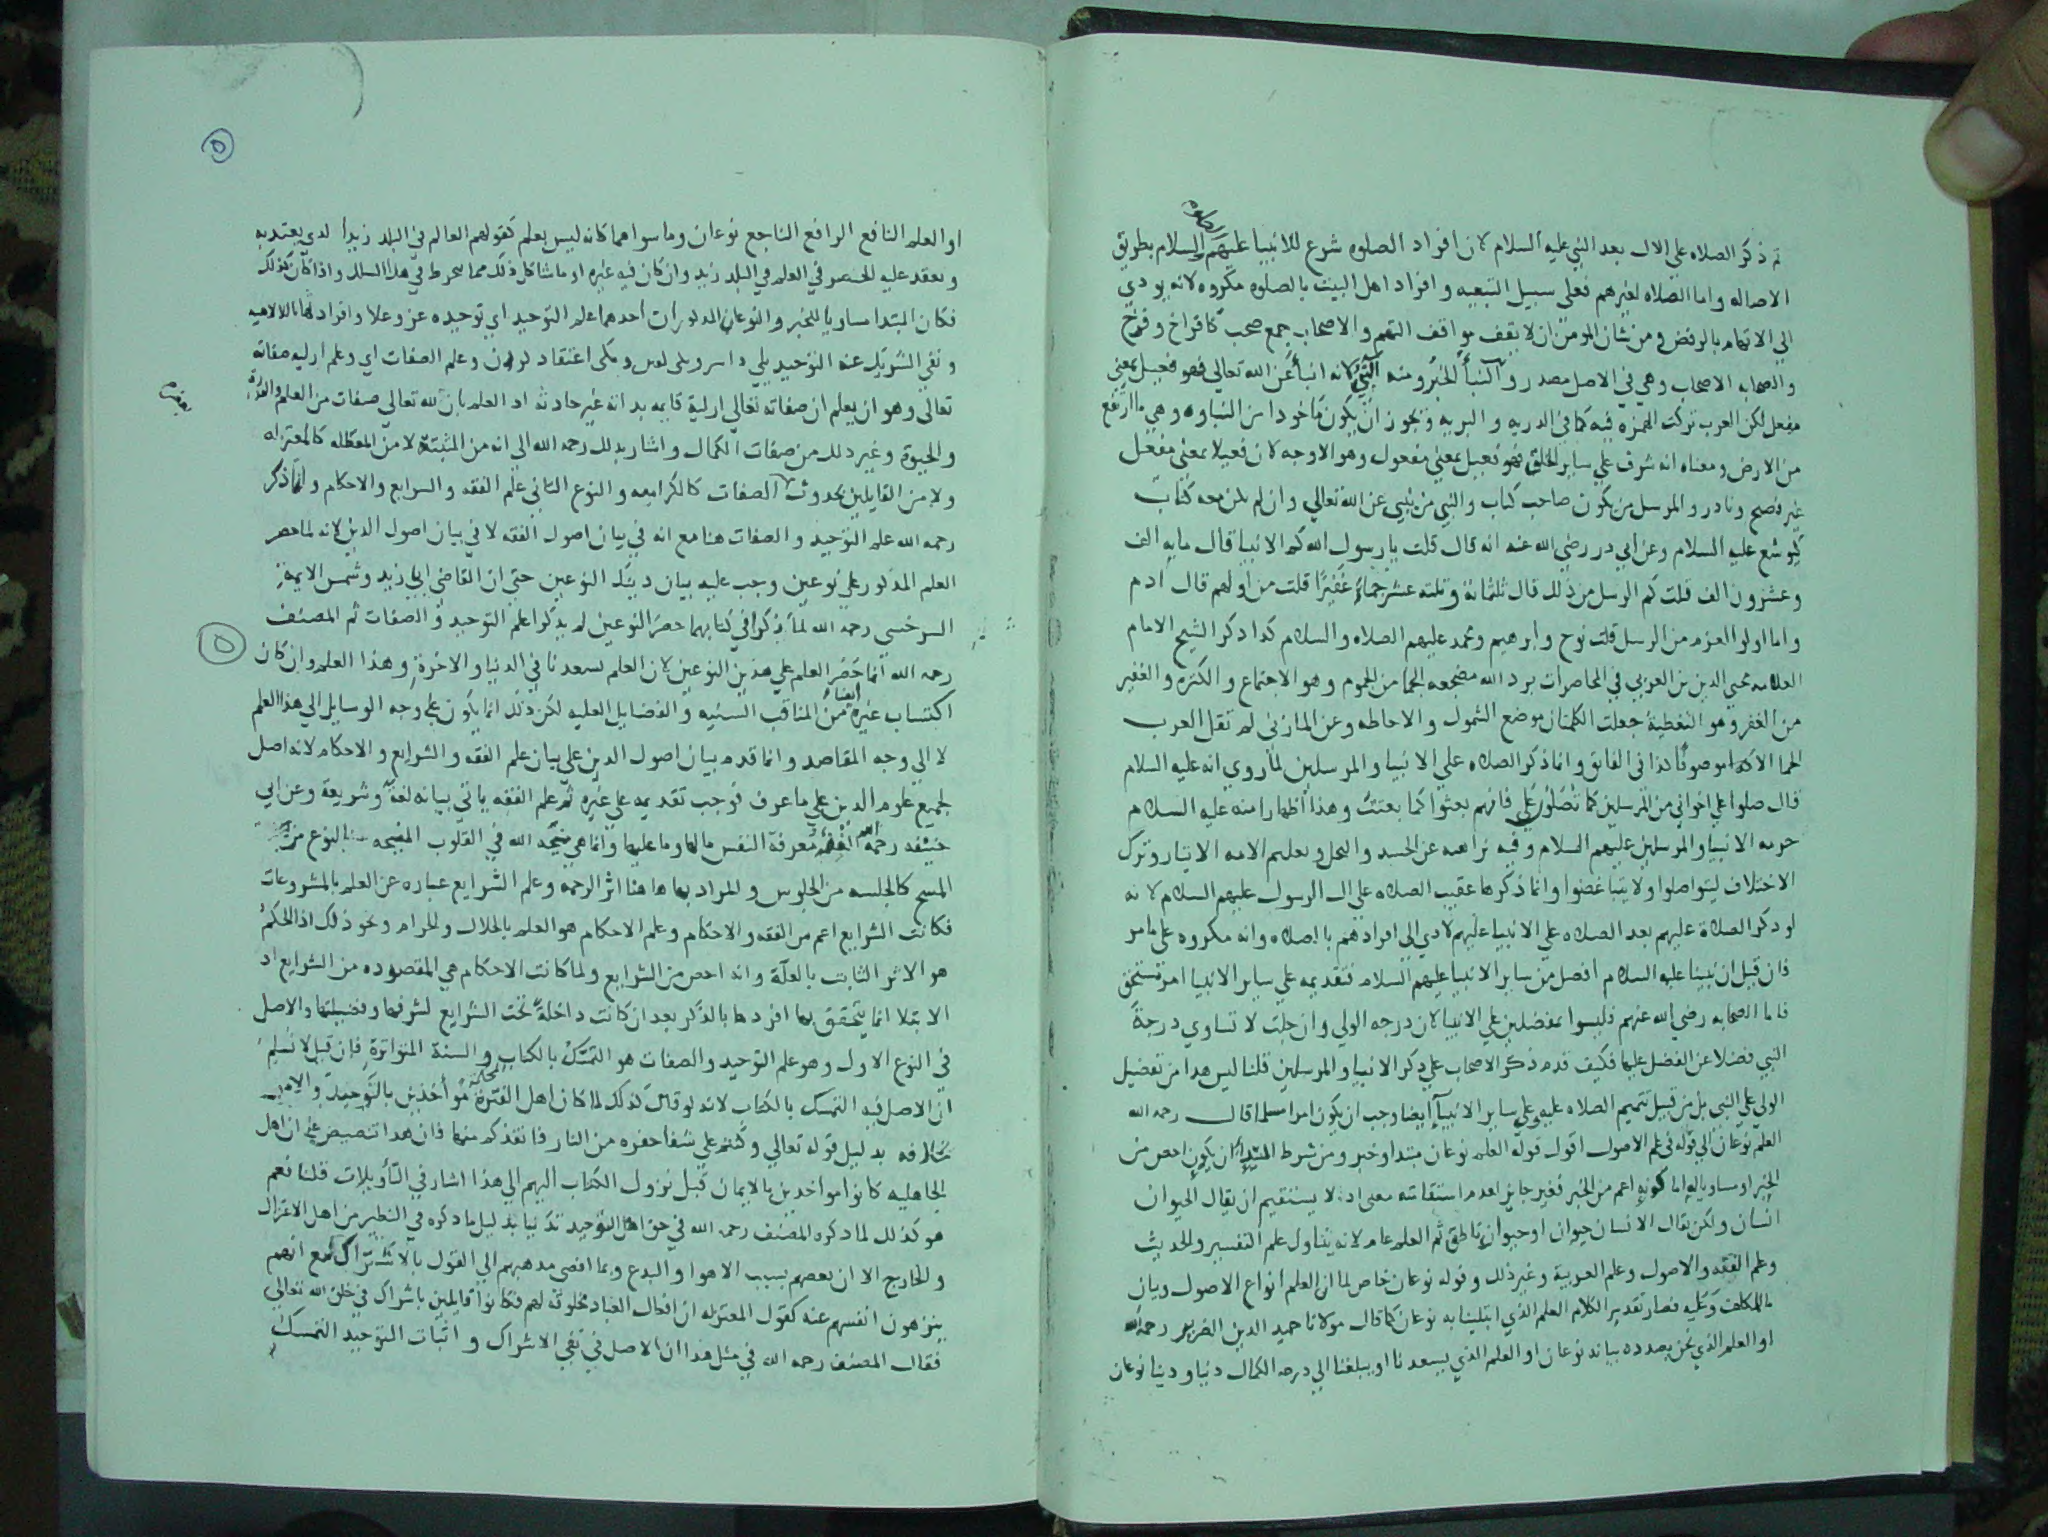 ثم ذكر الصلاه على الال بعد النبي عليه السلام لان افراد الصلوه شرع للانبيا عليهم السلام بطريق
الاصاله واما الصلاه لغيرهم فعلى سبيل التبعيه وافراد اهل البيت بالصلوه مكروه لانه يودي
الى الاتهام بالرفض ومن شان المومن ان لا يقف مواقف التهم والاصحاب جمع صحب كافراخ وفرخ
والصحابه الاصحاب وهي في الاصل مصدر والنبأ الخبر ومنه النبي لانه انبأ عن الله تعالى فهو فعيل بمعنى
مفعل لكن العرب تركت الهمزه فيه كما في الذريه والبريه ويجوز ان يكون ماخوذا من النباوه وهي ما ارتفع
من الارض ومعناه انه شرف على ساير الخلق فهو فعيل بمعنى مفعول وهو الاوجه لان فعيلا بمعنى مفعل
غير فصيح ونادر والمرسل من يكون صاحب كتاب والنبي من ينبي عن الله تعالى وان لم يكن معه كتاب
كيوشع عليه السلام وعن ابي در رضي الله عنه انه قال قلت يا رسول الله كم الانبيا قال مايه الف
وعشرون الف قلت كم الرسل من ذلك قال ثلثمائة وثلثه عشر جماء غفيرا قلت من اولهم قال ادم
واما اولوا العزم من الرسل قلت نوح وابرهيم ومحمد عليهم الصلاه والسلام كدا دكر الشيخ الامام
العلامه محيي الدين بن العربي في المحاضرات برد الله مضجعه الجما من الجموم وهو الاجتماع والكثره والغفير
من الغفر وهو التغطية جعلت الكلمتان موضع الشمول والاحاطه وعن المازني لم تقل العرب
الجما الا موصوفا كذا في الفايق وانما ذكر الصلاه على الانبيا والمرسلين لما روي انه عليه السلام
قال صلوا على اخواني من المرسلين كما تصلون علي فانهم بعثوا كما بعثت وهذا اظهار منه عليه السلام
حرمه الانبيا والمرسلين عليهم السلام وفيه نزاهته عن الحسد والبخل وتعليم الامه الايثار وترك
الاختلاف ليتواصلوا ولا يتباغضوا وانما ذكرها عقيب الصلاه على ال الرسول عليهم السلام لانه
لو دكر الصلاة عليهم بعد الصلاه على الانبيا عليهم لادي الى افرادهم بالصلاه وانه مكروه على ما مر
فان قيل ان نبينا عليه السلام افضل من ساير الانبيا عليهم السلام فتقديمه على ساير الانبيا امر مستحق
فاما الصحابه رضي الله عنهم فليسوا بمفضلين على الانبيا لان درجه الولي وان جلت لا تساوي درجة
النبي فضلا عن الفضل عليها فكيف قدم ذكر الاصحاب على ذكر الانبيا والمرسلين قلنا ليس هدا من تفضيل
الولي على النبي بل من قبيل تتميم الصلاه عليه وعلى ساير الانبيآ ايضا وجب ان يكون امرا مسلما قال رحمه الله
العلم نوعان الى قوله في علم الاصول اقول قوله العلم نوعان مبتدا وخبر ومن شرط المبتدا ان يكون اخص من
الخبر او مساويا له اما كونه اعم من الخبر فغير جايز لعدم استقامته معنى اد لا يستقيم ان يقال الحيوان
انسان ولكن يقال الانسان حيوان او حيوان ناطق ثم العلم عام لانه يتناول علم التفسير والحديث
وعلم الفقه والاصول وعلم العربية وغير ذلك وقوله نوعان خاص لما ان العلم انواع الاصول وبيان
وعليه فصار تقدير الكلام العلم الذي ابتلينا به نوعان كما قال مولانا حميد الدين الضرير رحمه الله
او العلم الذي نحن بصدده بيانه نوعان او العلم الذي يسعدنا او يبلغنا الى درجه الكمال دنيا ودينا نوعان
٥
او العلم النافع الرافع الناجع نوعان وما سواهما كانه ليس بعلم كقولهم العالم في البلد زيد اي الذي يعتد به
ويعقد عليه الخنصر في العلم في البلد زيد وان كان فيه غيره او ما شاكل ذلك مما ينخرط في هذا السلك واذا كان كذلك
فكان المبتدا مساويا للخبر والنوعان المذكوران أحدهما علم التوحيد اي توحيده عز وعلا وافراد
ونفي الشريك عنه التوحيد وعلم الصفات اي وعلم ازليه صفاته
تعالى وهو ان يعلم ان صفاته تعالى ازلية قايمه بداته غير حادثه اد العلم بان لله تعالى صفات من العلم والقدرة
والحيوة وغير ذلك من صفات الكمال واشار بدلك رحمه الله الى انه من المثبتة لا من المعطله كالمعتزله
ولا من القايلين بحدوث الصفات كالكراميه والنوع الثاني علم الفقه والشرايع والاحكام وانما ذكر
رحمه الله علم التوحيد والصفات هنا مع انه في بيان اصول الفقه لا في بيان اصول الدين لانه لما حصر
العلم المذكور على نوعين وجب عليه بيان دينك النوعين حتى ان القاضي ابي زيد وشمس الايمة
السرخسي رحمه الله لما لم يذكرا في كتابيهما حصر النوعين لم يذكرا علم التوحيد والصفات ثم المصنف
٥
رحمه الله انما حصر العلم على هذين النوعين لان العلم يسعدنا في الدنيا والاخرة وهذا العلم وان كان
اكتساب غيره ايضا من المناقب السنيه والفضايل العليه لكن ذلك انما يكون على وجه الوسايل الى هذا العلم
لا الى وجه المقاصد وانما قدم بيان اصول الدين على بيان علم الفقه والشرايع والاحكام لانه اصل
لجميع علوم الدين على ما عرف فوجب تقديمه على غيره ثم علم الفقه ياتي بيانه لغة وشريعة وعن ابي
حنيفه رحمه الله الفقه معرفة النفس مالها وما عليها وانما هي منحة الله في القلوب النوع من
المسح كالجلسه من الجلوس والمراد بها هاهنا اثر الرحمه وعلم الشرايع عباره عن العلم بالمشروعات
فكانت الشرايع اعم من الفقه والاحكام وعلم الاحكام هو العلم بالحلال والحرام ونحو ذلك اذ الحكم
هو الاثر الثابت بالعلة وانه اخص من الشرايع ولما كانت الاحكام هي المقصوده من الشرايع اد
الابتلا انما يتحقق بها افردها بالذكر بعد ان كانت داخلة تحت الشرايع لشرفها وفضيلتها والاصل
في النوع الاول وهو علم التوحيد والصفات هو التمسك بالكتاب والسنة المتواترة فان قيل لا نسلم
ان الاصل فيه التمسك بالكتاب لانه لو كان كذلك لما كان اهل الفترة مؤاخذين بالتوحيد والامر
بخلافه بدليل قوله تعالى وكنتم على شفا حفره من النار فانقذكم منها فان هدا تنصيص على ان اهل
الجاهليه كانوا مواخدين بالايمان قبل نزول الكتاب اليهم الى هذا اشار في التأويلات قلنا نعم
هو كذلك لما دكره المصنف رحمه الله في حق اهل التوحيد تدينا بدليل ما دكره في النظير من اهل الاعتزال
والخارج الا ان بعضهم بسبب الاهوا والبدع ربما افضى مدهبهم الى القول بالاشتراك مع انهم
ينزهون انفسهم عنه كقول المعتزله ان افعال العباد مخلوقة لهم فكانوا قايلين باشراك في خلق الله تعالى
فقال المصنف رحمه الله في مثل هذا ان الاصل في نفي الاشراك واثبات التوحيد التمسك